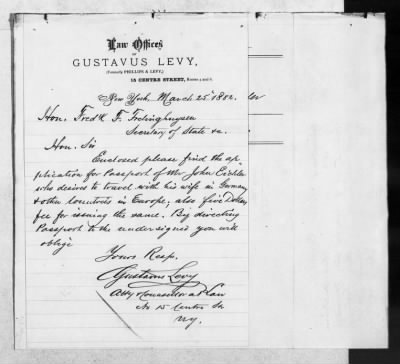 Law Offices
OF
GUSTAVUS LEVY,
(Formerly PHILLIPS & LEVY,)
15 CENTRE STREET, Rooms 5 and 6.
New York, March 25th 1882.
Hon. Fredk F. Frelinghuysen
Secretary of State &c.
Hon. Sir
Enclosed please find the ap-
plication for Passport of Mr John Eichler
who desires to travel with his wife in Germany
& other countries in Europe, also five Dollars
fee for issuing the same. By directing
Passport to the undersigned you will
oblige
Yours Resp.
Gustavus Levy
Atty & Counsellor at Law
No 15 Centre St
NY.